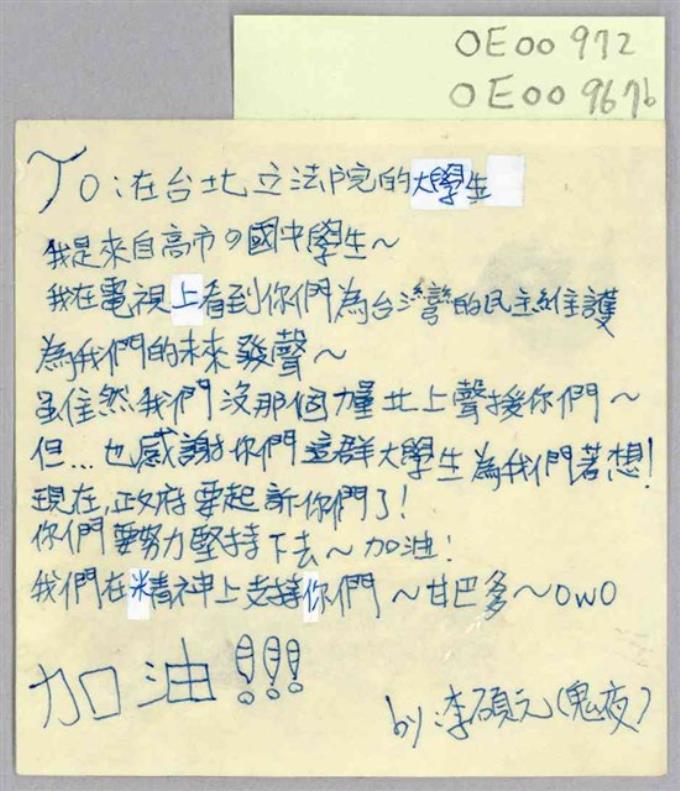 OE00972
OE00967b
To:在台北立法院的大學生
我是來自高市の國中學生~
我在電視上看到你們為台灣的民主維護
為我們的未來發聲~
雖然我們沒那個力量北上聲援你們~
但...也感謝你們這群大學生為我們著想!
現在,政府要起訴你們了!
你們要努力堅持下去~加油!
我們在精神上支持你們~甘巴爹~OWO
加油!!!
by:李碩元(鬼夜)